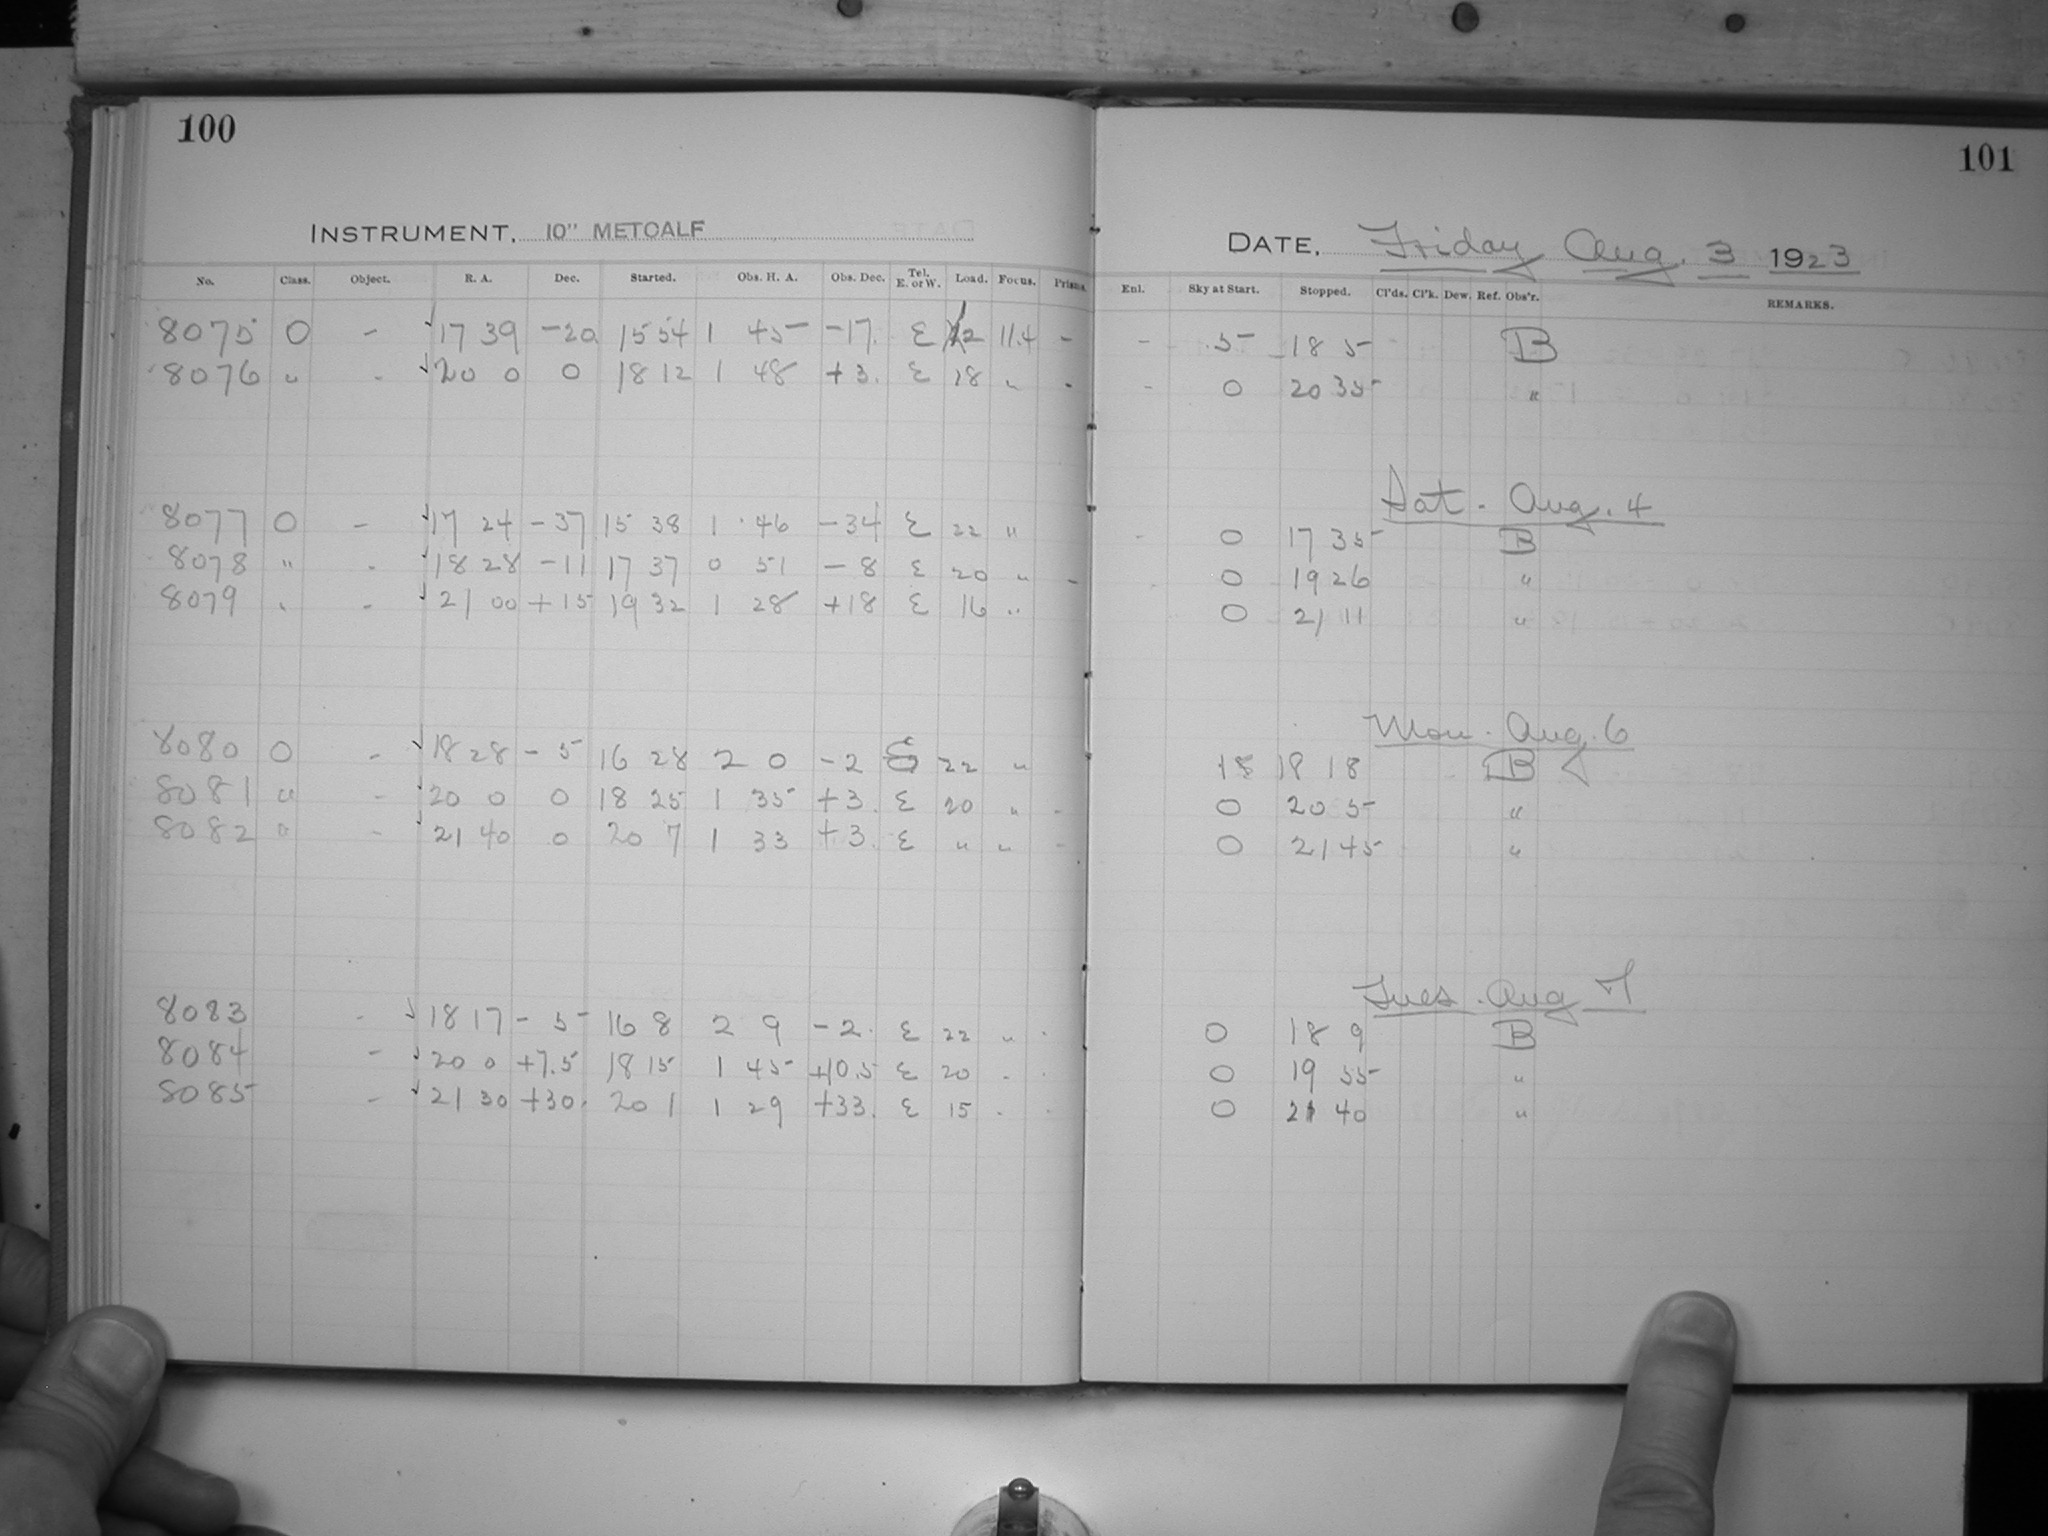 100
INSTRUMENT, 10" METCALF
No. Class. Object. R. A. Dec. Started. Obs. H. A. Obs. Dec. Tel. E. or W. Load. Focus. Prisms.
8075 O - √ 17 39 -20 15 54 1 45 -17. E 22 11.4 -
8076 " - √ 20 0 0 18 12 1 48 +3. E 18 " -
8077 O - √ 17 24 -37 15 38 1 46 -34 E 22 "
8078 " - √ 18 28 -11 17 37 0 51 -8 E 20 " -
8079 " - √ 21 00 +15 19 32 1 28 +18 E 16 "
8080 O - √ 18 28 -5 16 28 2 0 -2 E 22 "
8081 " - √ 20 0 0 18 25 1 35 +3. E 20 " -
8082 " - √ 21 40 0 20 7 1 33 +3. E " " -
8083 - √ 18 17 -5 16 8 2 9 -2. E 22 " -
8084 - √ 20 0 +7.5 18 15 1 45 +10.5 E 20 " -
8085 - √ 21 30 +30. 20 1 1 29 +33. E 15 " -
101
DATE, Friday Aug. 3 1923
Enl. Sky at Start. Stopped. Cl'ds. Cl'k. Dew. Ref. Obs'r. REMARKS.
- 5 18 5 B
- 0 20 35 "
Sat. Aug. 4
- 0 17 35 B
0 19 26 "
0 21 11 "
Mon. Aug. 6
18 18 B
0 20 5 "
0 21 45 "
Tues. Aug 7
0 18 9 B
0 19 55 "
0 21 40 "